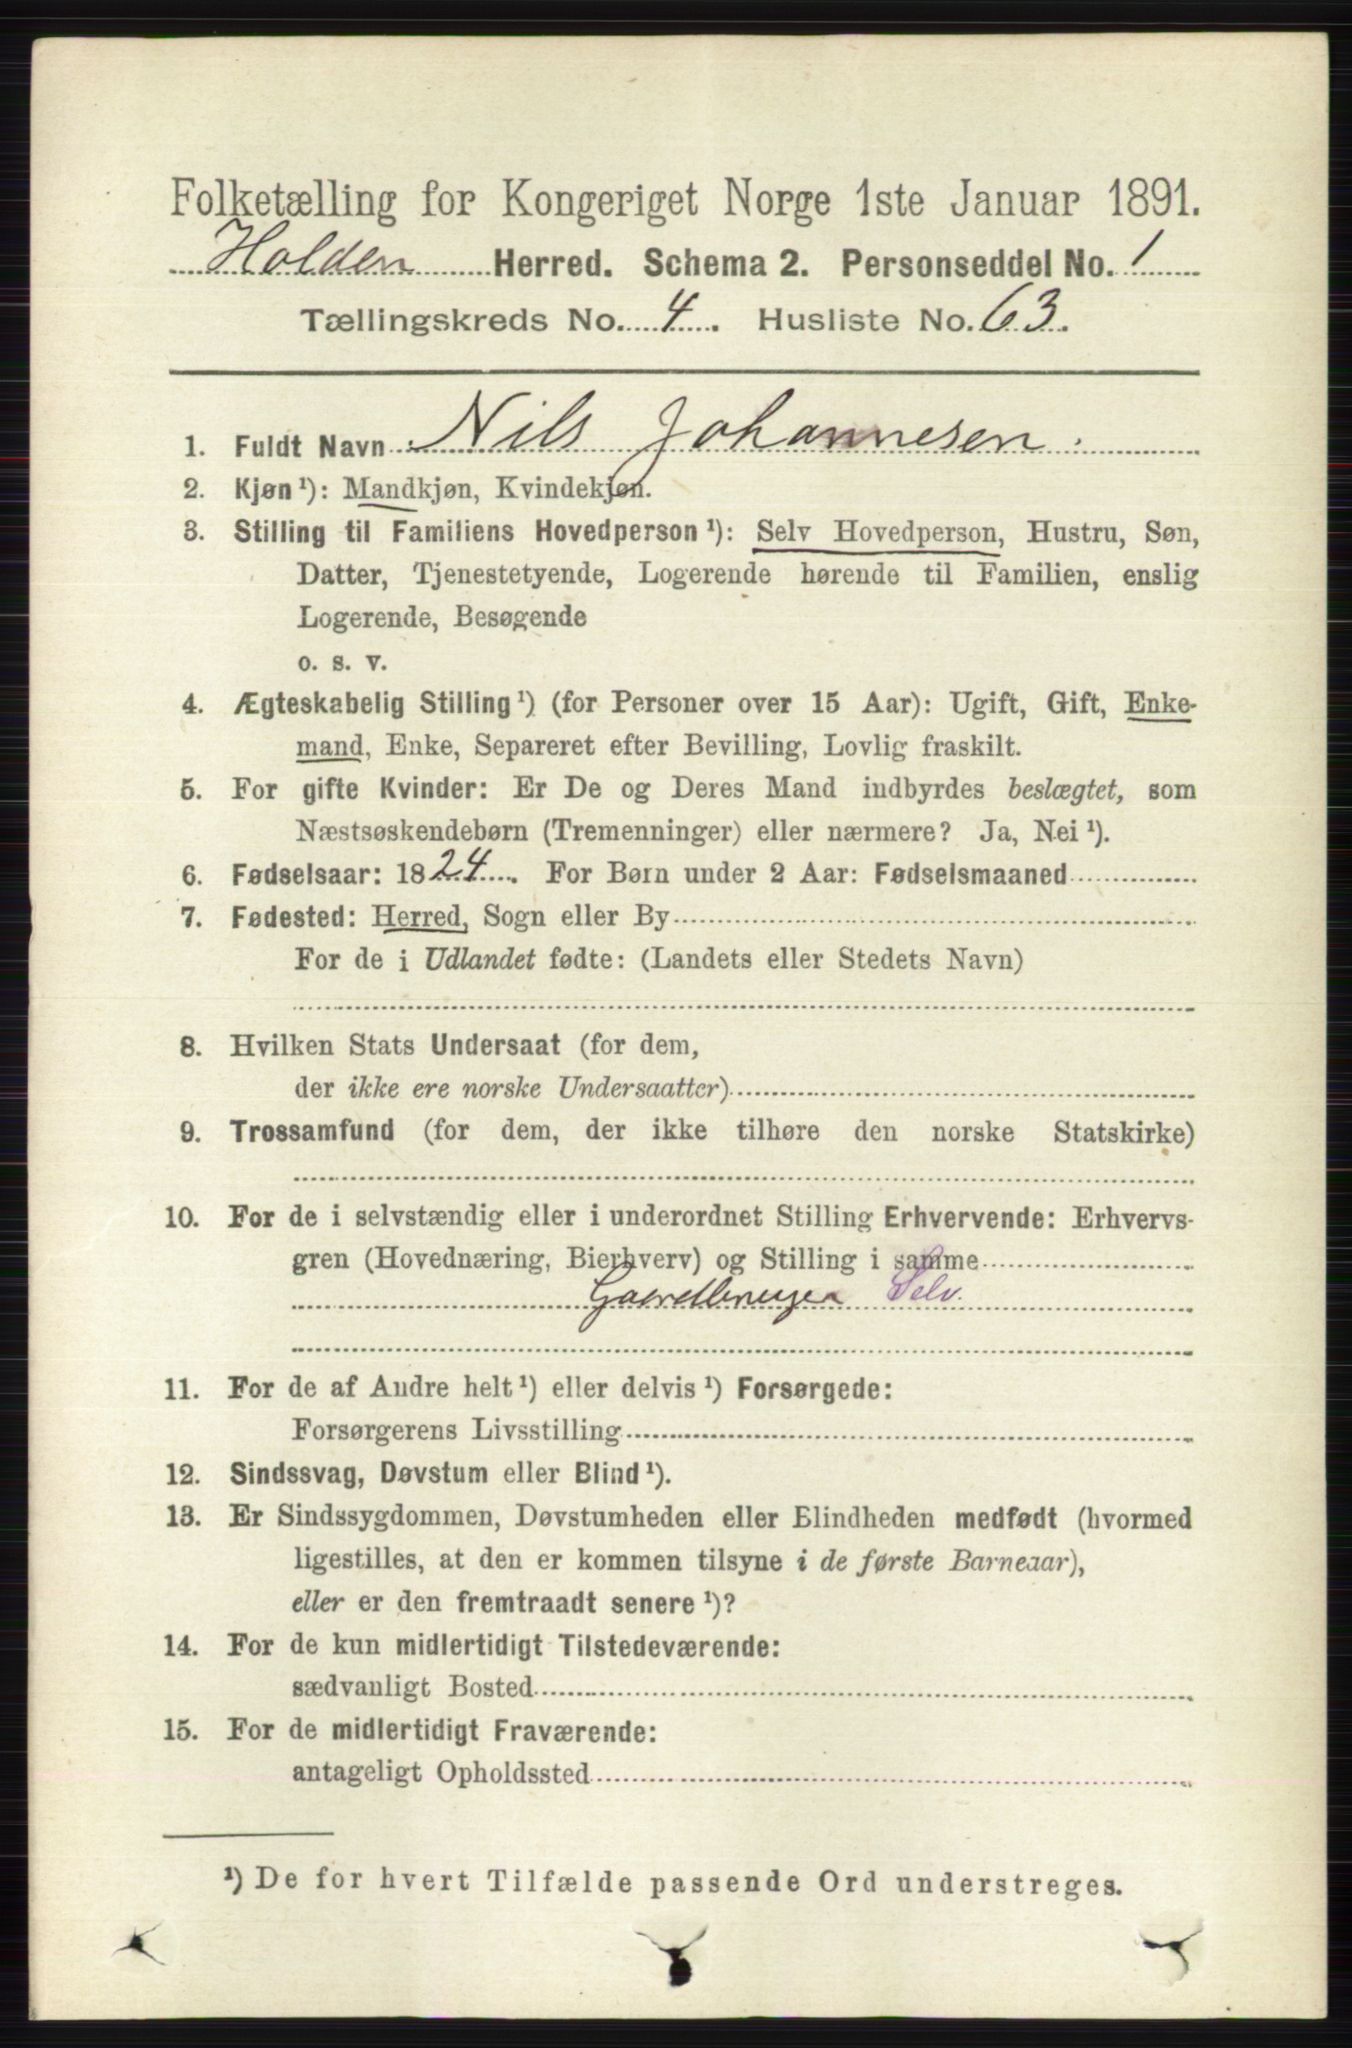 Folketælling for Kongeriget Norge 1ste Januar 1891.
Holden Herred. Schema 2. Personseddel No. 1
Tællingskreds No. 4. Husliste No. 63.
1. Fuldt Navn Nils Johannesen.
2. Kjøn¹): Mandkjøn, Kvindekjøn.
3. Stilling til Familiens Hovedperson¹): Selv Hovedperson, Hustru, Søn,
Datter, Tjenestetyende, Logerende hørende til Familien, enslig
Logerende, Besøgende
o. s. v.
4. Ægteskabelig Stilling¹) (for Personer over 15 Aar): Ugift, Gift, Enke-
mand, Enke, Separeret efter Bevilling, Lovlig fraskilt.
5. For gifte Kvinder: Er De og Deres Mand indbyrdes beslægtet, som
Næstsøskendebørn (Tremenninger) eller nærmere? Ja, Nei¹).
6. Fødselsaar: 1824. For Børn under 2 Aar: Fødselsmaaned
7. Fødested: Herred, Sogn eller By
For de i Udlandet fødte: (Landets eller Stedets Navn)
8. Hvilken Stats Undersaat (for dem,
der ikke ere norske Undersaatter)
9. Trossamfund (for dem, der ikke tilhøre den norske Statskirke)
10. For de i selvstændig eller i underordnet Stilling Erhvervende: Erhvervs-
gren (Hovednæring, Bierhverv) og Stilling i samme
Selv.
11. For de af Andre helt¹) eller delvis¹) Forsørgede:
Forsørgerens Livsstilling
12. Sindssvag, Døvstum eller Blind¹).
13. Er Sindssygdommen, Døvstumheden eller Blindheden medfødt (hvormed
ligestilles, at den er kommen tilsyne i de første Barneaar),
eller er den fremtraadt senere¹)?
14. For de kun midlertidigt Tilstedeværende:
sædvanligt Bosted
15. For de midlertidigt Fraværende:
antageligt Opholdssted
¹) De for hvert Tilfælde passende Ord understreges.